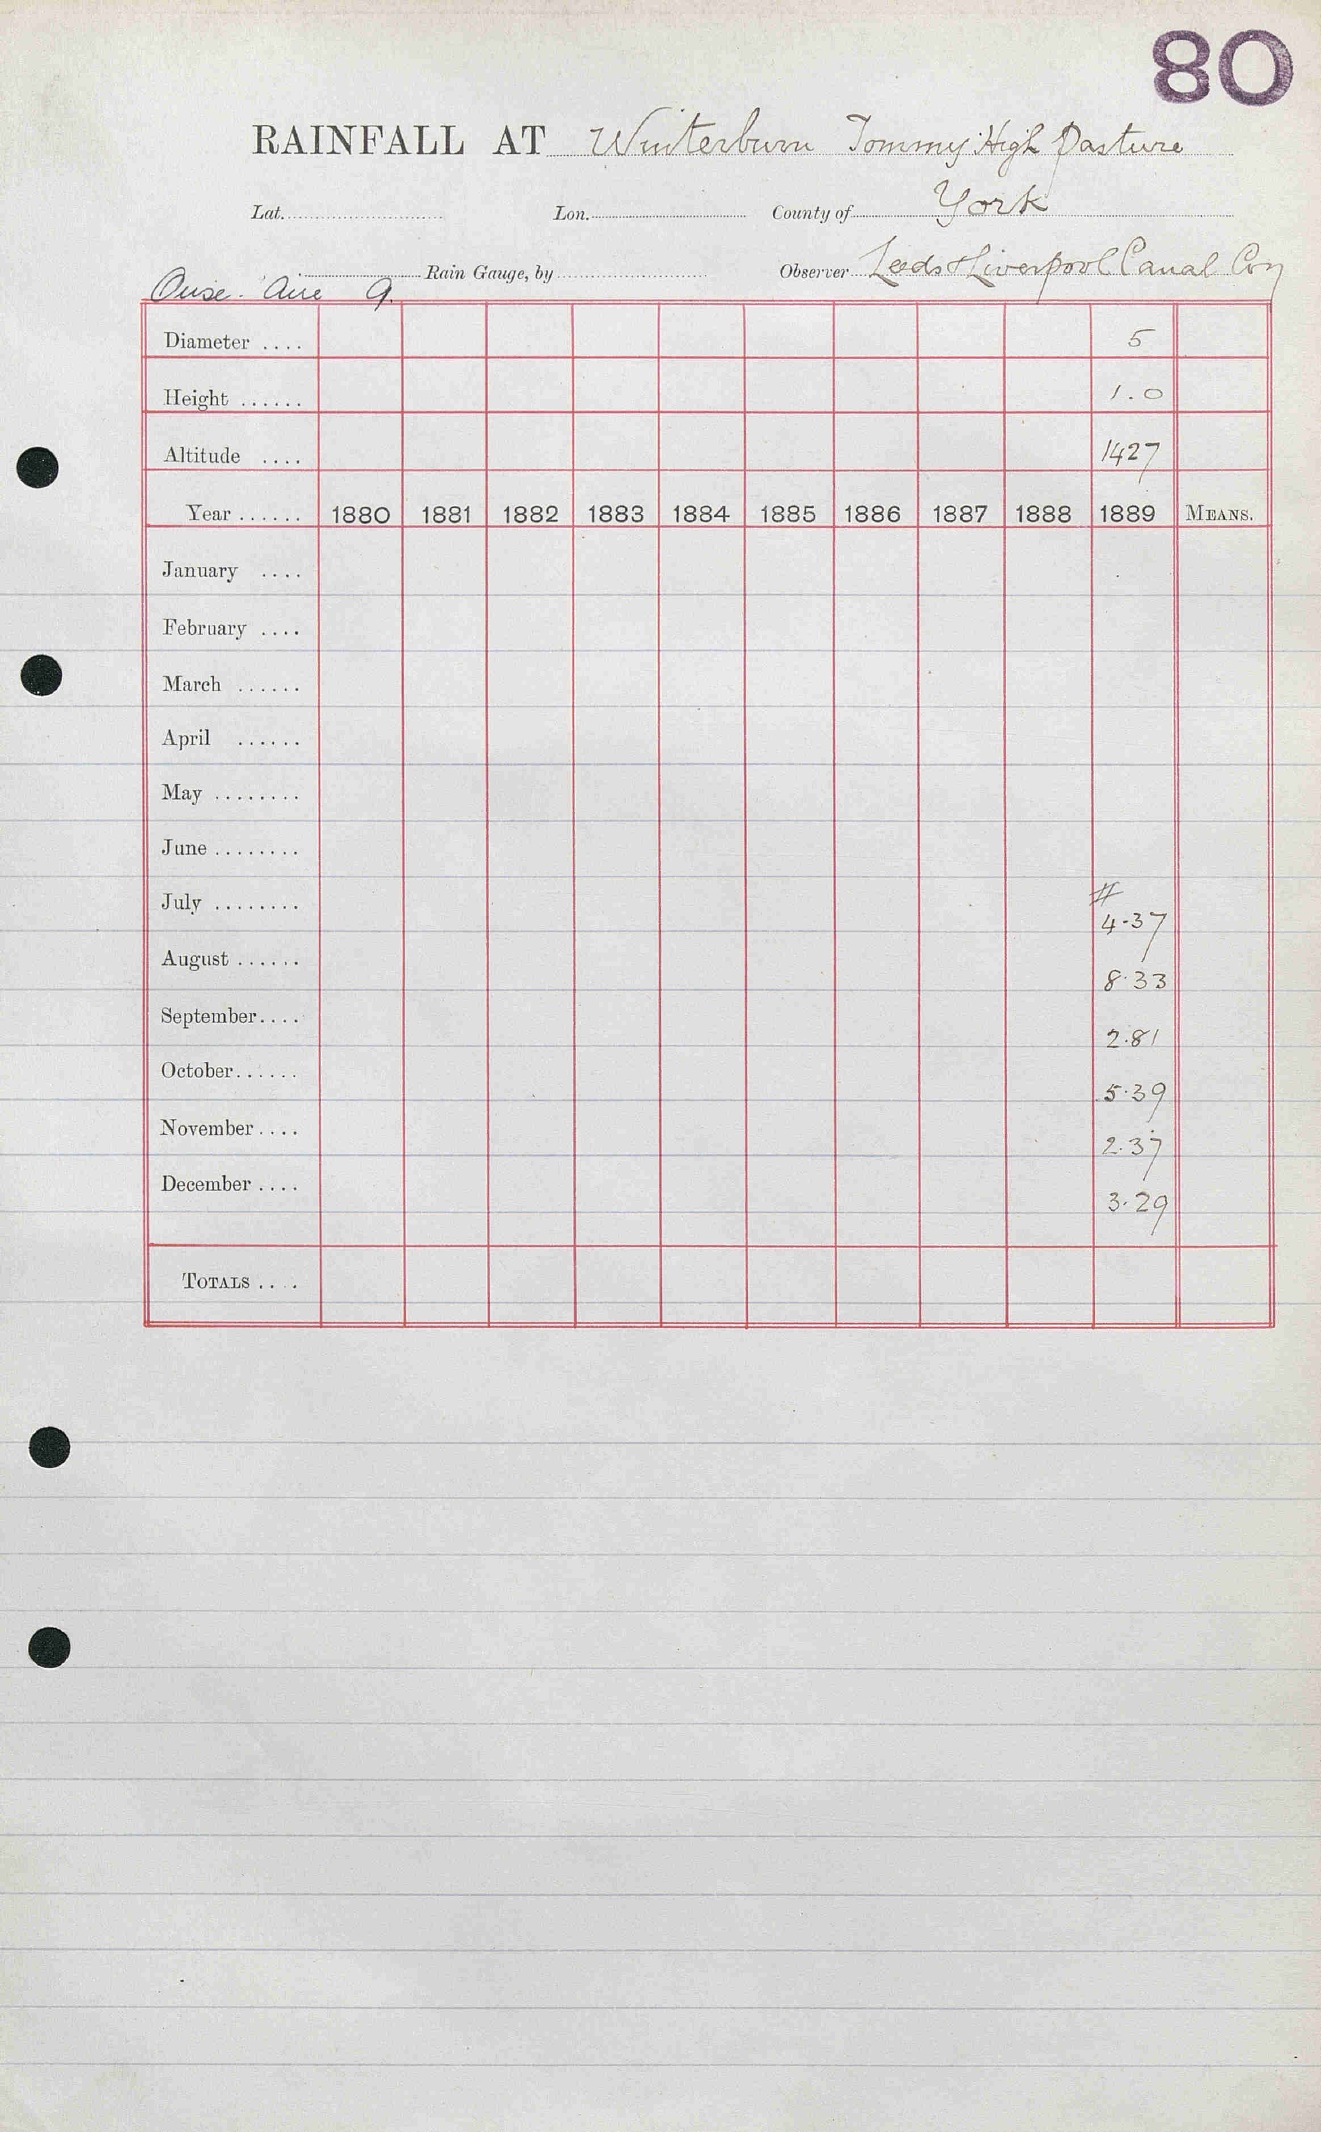 80
RAINFALL AT Winterburn Tommy High Pasture
Lat. Lon. County of York
Rain Gauge, by Observer Leeds & Liverpool Canal Coy
Ouse. Aire 9.
Diameter .... 5
Height ...... 1.0
Altitude .... 1427
Year ...... 1880 1881 1882 1883 1884 1885 1886 1887 1888 1889 MEANS.
January ....
February ....
March ......
April ......
May ........
June ........
July ........ # 4.37
August ...... 8.33
September.... 2.81
October...... 5.39
November.... 2.37
December.... 3.29
TOTALS ....